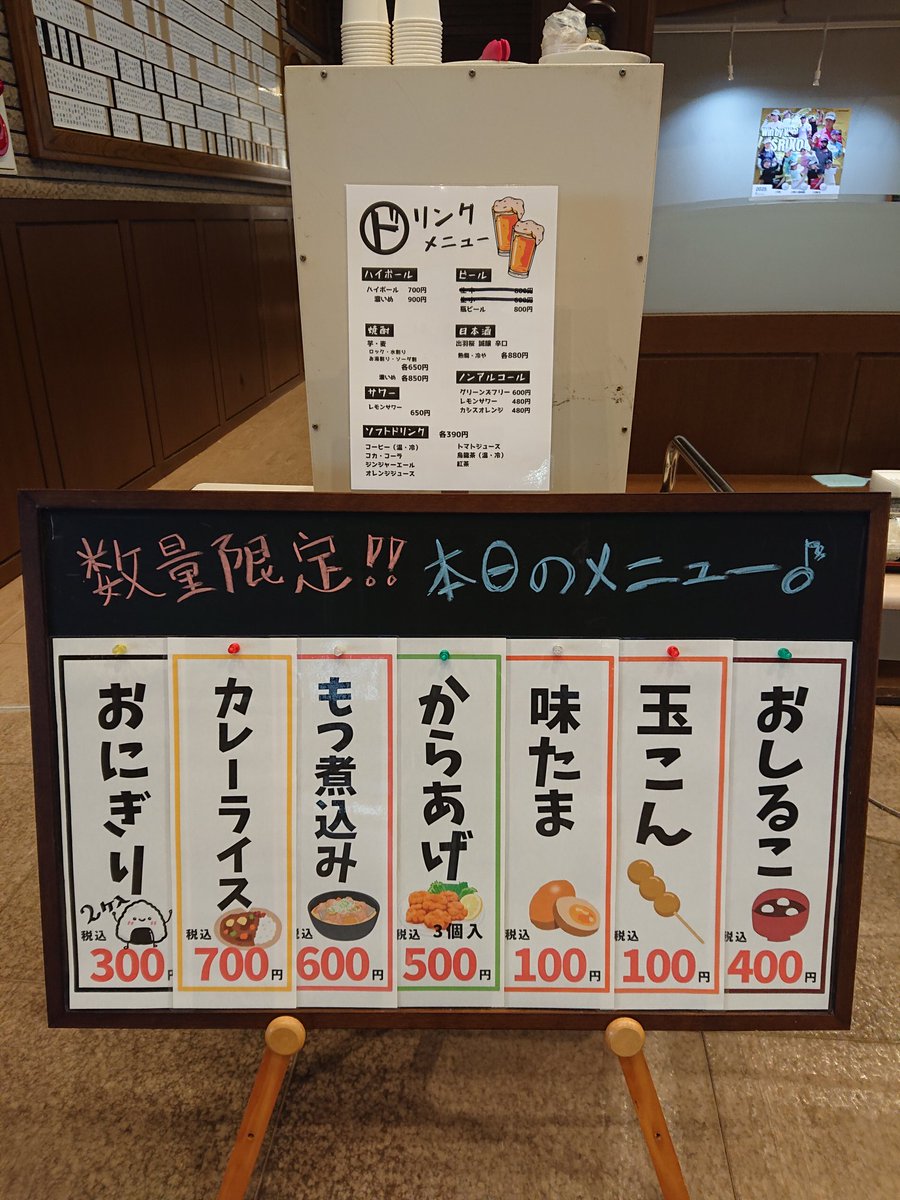 ドリンク
メニュー
ハイボール
ハイボール 700円
濃いめ 900円
ビール
800円
600円
瓶ビール 800円
焼酎
芋・麦
ロック・水割り
お湯割り・ソーダ割
各650円
濃いめ 各850円
日本酒
出羽桜 誠醸 辛口
熱燗・冷や 各880円
サワー
レモンサワー 650円
ノンアルコール
グリーンズフリー 600円
レモンサワー 480円
カシスオレンジ 480円
ソフトドリンク 各390円
コーヒー（温・冷）
コカ・コーラ
ジンジャーエール
オレンジジュース
トマトジュース
烏龍茶（温・冷）
紅茶
SRIXON
2025
数量限定!! 本日のメニュー♪
おにぎり
2ケ入
税込
300円
カレーライス
税込
700円
もつ煮込み
税込
600円
からあげ
税込 3個入
500円
味たま
税込
100円
玉こん
税込
100円
おしるこ
税込
400円